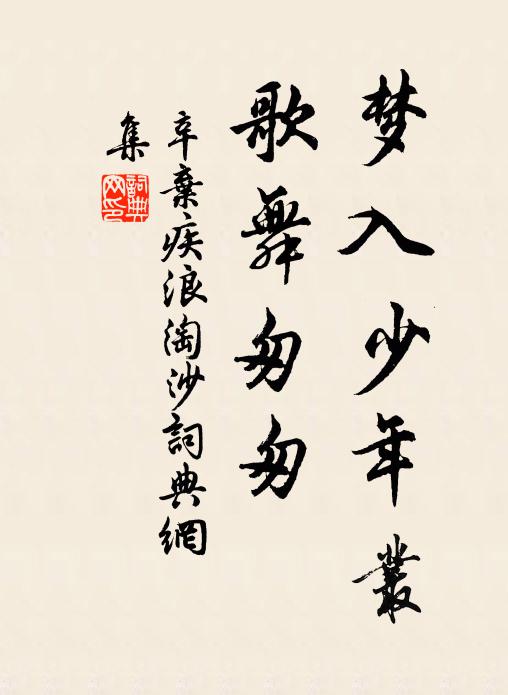 梦入少年叢
歌舞匆匆
辛棄疾浪淘沙詞典網
集
詞典網印